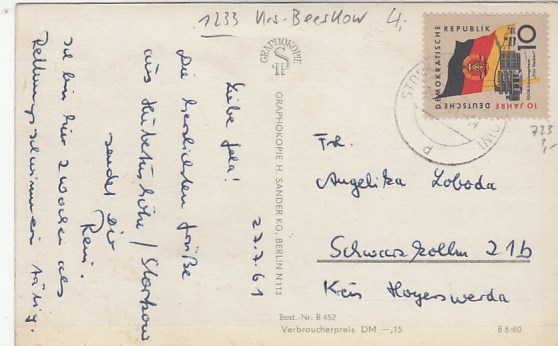 1233 Krs. Beeskow 4,-
27.7.61
Liebe Gela!
Die herzlichsten Grüße
aus Hubertushöhe / Storkow
sendet Dir
Reni.
Ich bin hier 2 Wochen als
Rettungsschwimmerin tätig.
GRAPHOKOPIE
GRAPHOKOPIE H. SANDER KG, BERLIN N 113
Best.-Nr. B 452
Verbraucherpreis DM —,15
B 8/60
10 JAHRE DEUTSCHE DEMOKRATISCHE REPUBLIK
10
STOR
723
1,-
Frl.
Angelika Loboda
Schwarzkollm 21b
Kreis Hoyerswerda